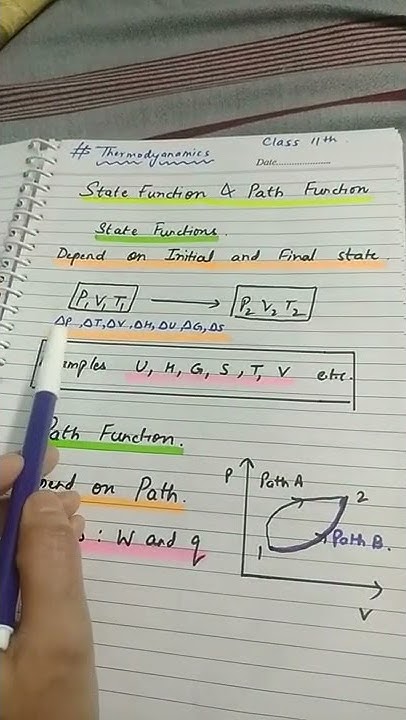 # Thermodyanamics
Class 11th.
Date
State Function & Path Function
State Functions.
Depend on Initial and Final state.
P₁ V₁ T₁ → P₂ V₂ T₂
ΔP, ΔT, ΔV, ΔH, ΔU, ΔG, ΔS
U, H, G, S, T, V etc.
Path Function.
on Path.
: W and q
P
Path A
2
1
Path B.
V